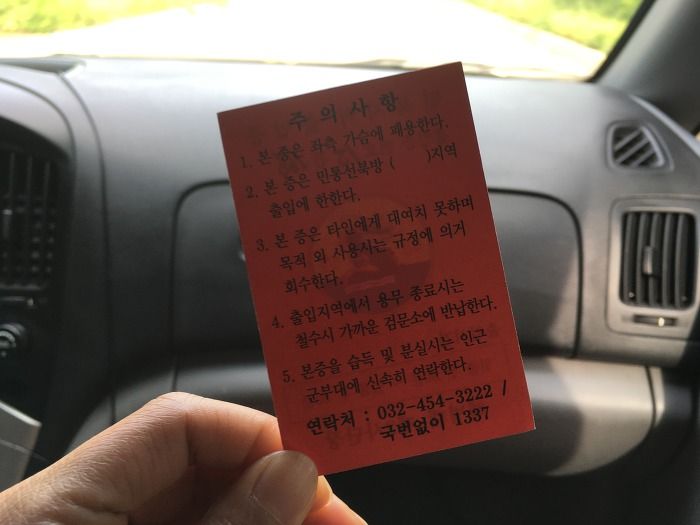 주 의 사 항
1. 본 증은 좌측 가슴에 패용한다.
2. 본 증은 민통선북방 ( )지역
출입에 한한다.
3. 본 증은 타인에게 대여치 못하며
목적 외 사용시는 규정에 의거
회수한다.
4. 출입지역에서 용무 종료시는
철수시 가까운 검문소에 반납한다.
5. 본증을 습득 및 분실시는 인근
군부대에 신속히 연락한다.
연락처 : 032-454-3222 /
국번없이 1337